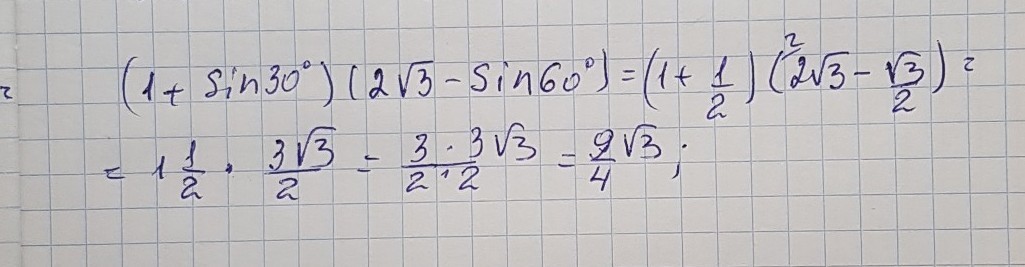 (1 + sin30°)(2√3 - sin60°) = (1 + 1/2)(²2√3 - √3/2) =
= 1 1/2 · 3√3/2 = 3·3√3/2·2 = 9√3/4;